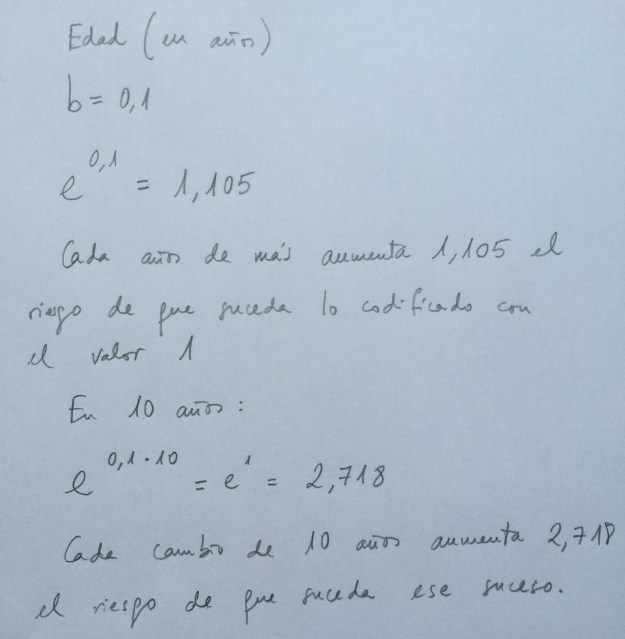 Edad (en años)
b = 0,1
e^0,1 = 1,105
Cada años de más aumenta 1,105 el
riesgo de que suceda lo codificado con
el valor 1
En 10 años:
e^0,1·10 = e^1 = 2,718
Cada cambio de 10 años aumenta 2,718
el riesgo de que suceda ese suceso.